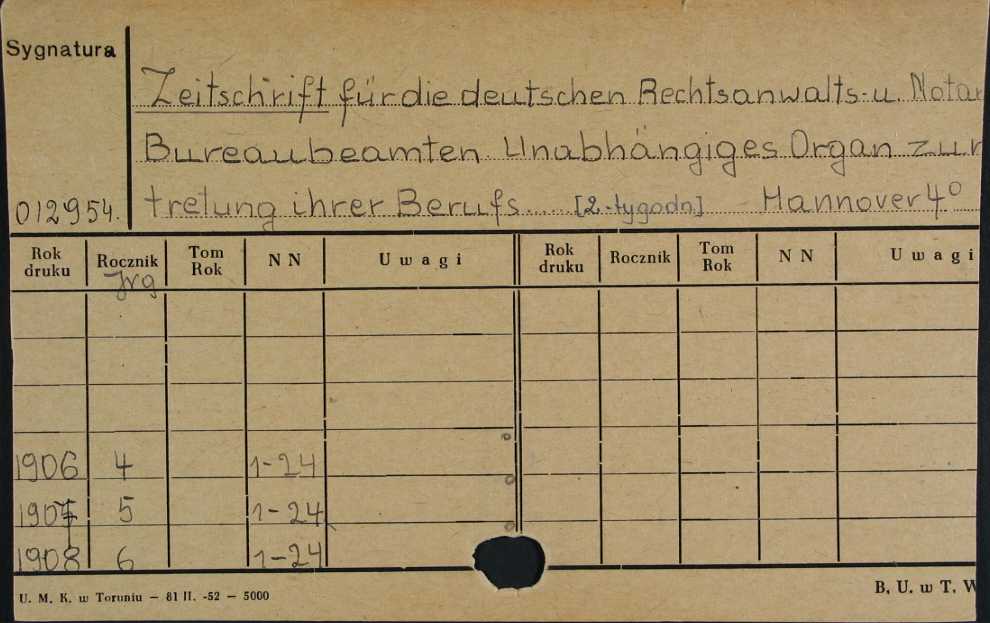 Sygnatura
Zeitschrift für die deutschen Rechtsanwalts-u. Notar
Bureaubeamten. Unabhängiges Organ zur
012954. tretung ihrer Berufs..... [2-tygodn.] Hannover 4°
Rok druku Rocznik Tom Rok NN Uwagi Rok druku Rocznik Tom Rok NN Uwagi
Jrg
1906 4 1-24
1907 5 1-24
1908 6 1-24
U. M. K. w Toruniu — 81 II. -52 — 5000 B. U. w T. W